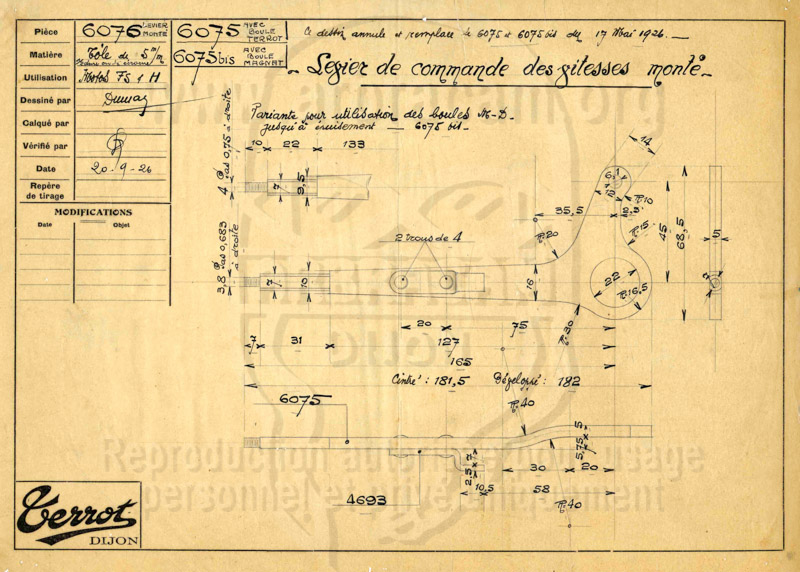 Pièce
6076 LEVIER MONTÉ
6075 AVEC BOULE TERROT
6075 bis AVEC BOULE MAGNAT
Ce dessin annule et remplace le 6075 et 6075 bis du 17 Mai 1926. —
Matière
Tôle de 5 m/m
Utilisation
Motos FS 1 H
Dessiné par
Dumaz
Calqué par
Vérifié par
Date
20-9-26
Repère de tirage
MODIFICATIONS
Date
Objet
- Levier de commande des vitesses monté -
Variante pour utilisation des boules M-D.
jusqu'à épuisement — 6075 bis -
10
22
133
4 pas 0,75 à droite
7
9,5
3,8 pas 0,683 à droite
7
10
2 trous de 4
14
6
12
R.10
35,5
10,5
R.15
R.20
45
68,5
5
16
22
R.16,5
R.30
20
75
7
31
127
165
Cintré : 181,5
Développé : 182
6075
R.40
5
5,75
2,5
7
30
20
10,5
58
4693
R.40
Terrot
DIJON
DIJON
Reproduction autorisée pour usage
personnel et privé uniquement